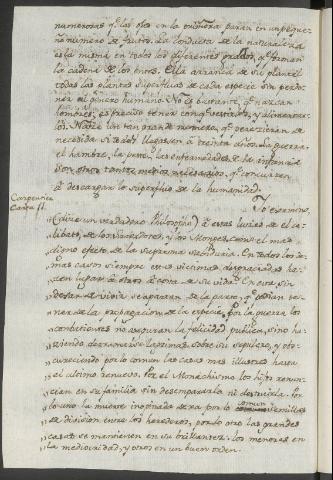 numerosas q.e las otras en la
numero de frutos. La conducta de la naturaleza
es la misma en todos los diferentes grados, q.e forman
la cadena de los entes. Ella arranca de su plantel
todas las plantas superfluas de cada especie sin perdo-
nar al genero humano. No es bastante, q.e nazcan
hombres, es preciso tener con q.e vestirlos, y alimentar-
los. Nace un tan grande numero, q.e perecerian de
necesidad si todos llegasen á treinta años. La guerra,
el hambre, la peste, las enfermedades de la infancia
son otros tantos medios necesarios, q.e concurren
á descargar lo superfluo de la humanidad.
Carpentier
Carta 51.
Yo examino,
(dice un verdadero Philosopho) á estas luces de el ce-
libato, de los Guerreros, y los Monges, como el mas
digno efecto de la suprema sabiduria. En todos los de-
mas casos siempre estas victimas desgraciadas ha-
cen lugar á otros á costa de su vida. En este, sin
dexar de vivir se apartan de la parte, q.e podian te-
ner de la propagacion de su especie. Por la guerra los
combatientes no aseguran la felicidad publica, sino ha-
ciendo derramar lagrimas sobre su sepulcro, y obs-
cureciendo por lo comun las casas mas illustres hasta
el ultimo renuevo. Por el Monachismo los hijos renun-
cian en su familia sin desampararla ni destruirla. Por
lo uno la muerte inopinada sera por lo comun semilla
de division entre los herederos, por lo otro las grandes
casas se mantienen en su brillantez: los menores en
la mediocridad, y otros en un buen orden.